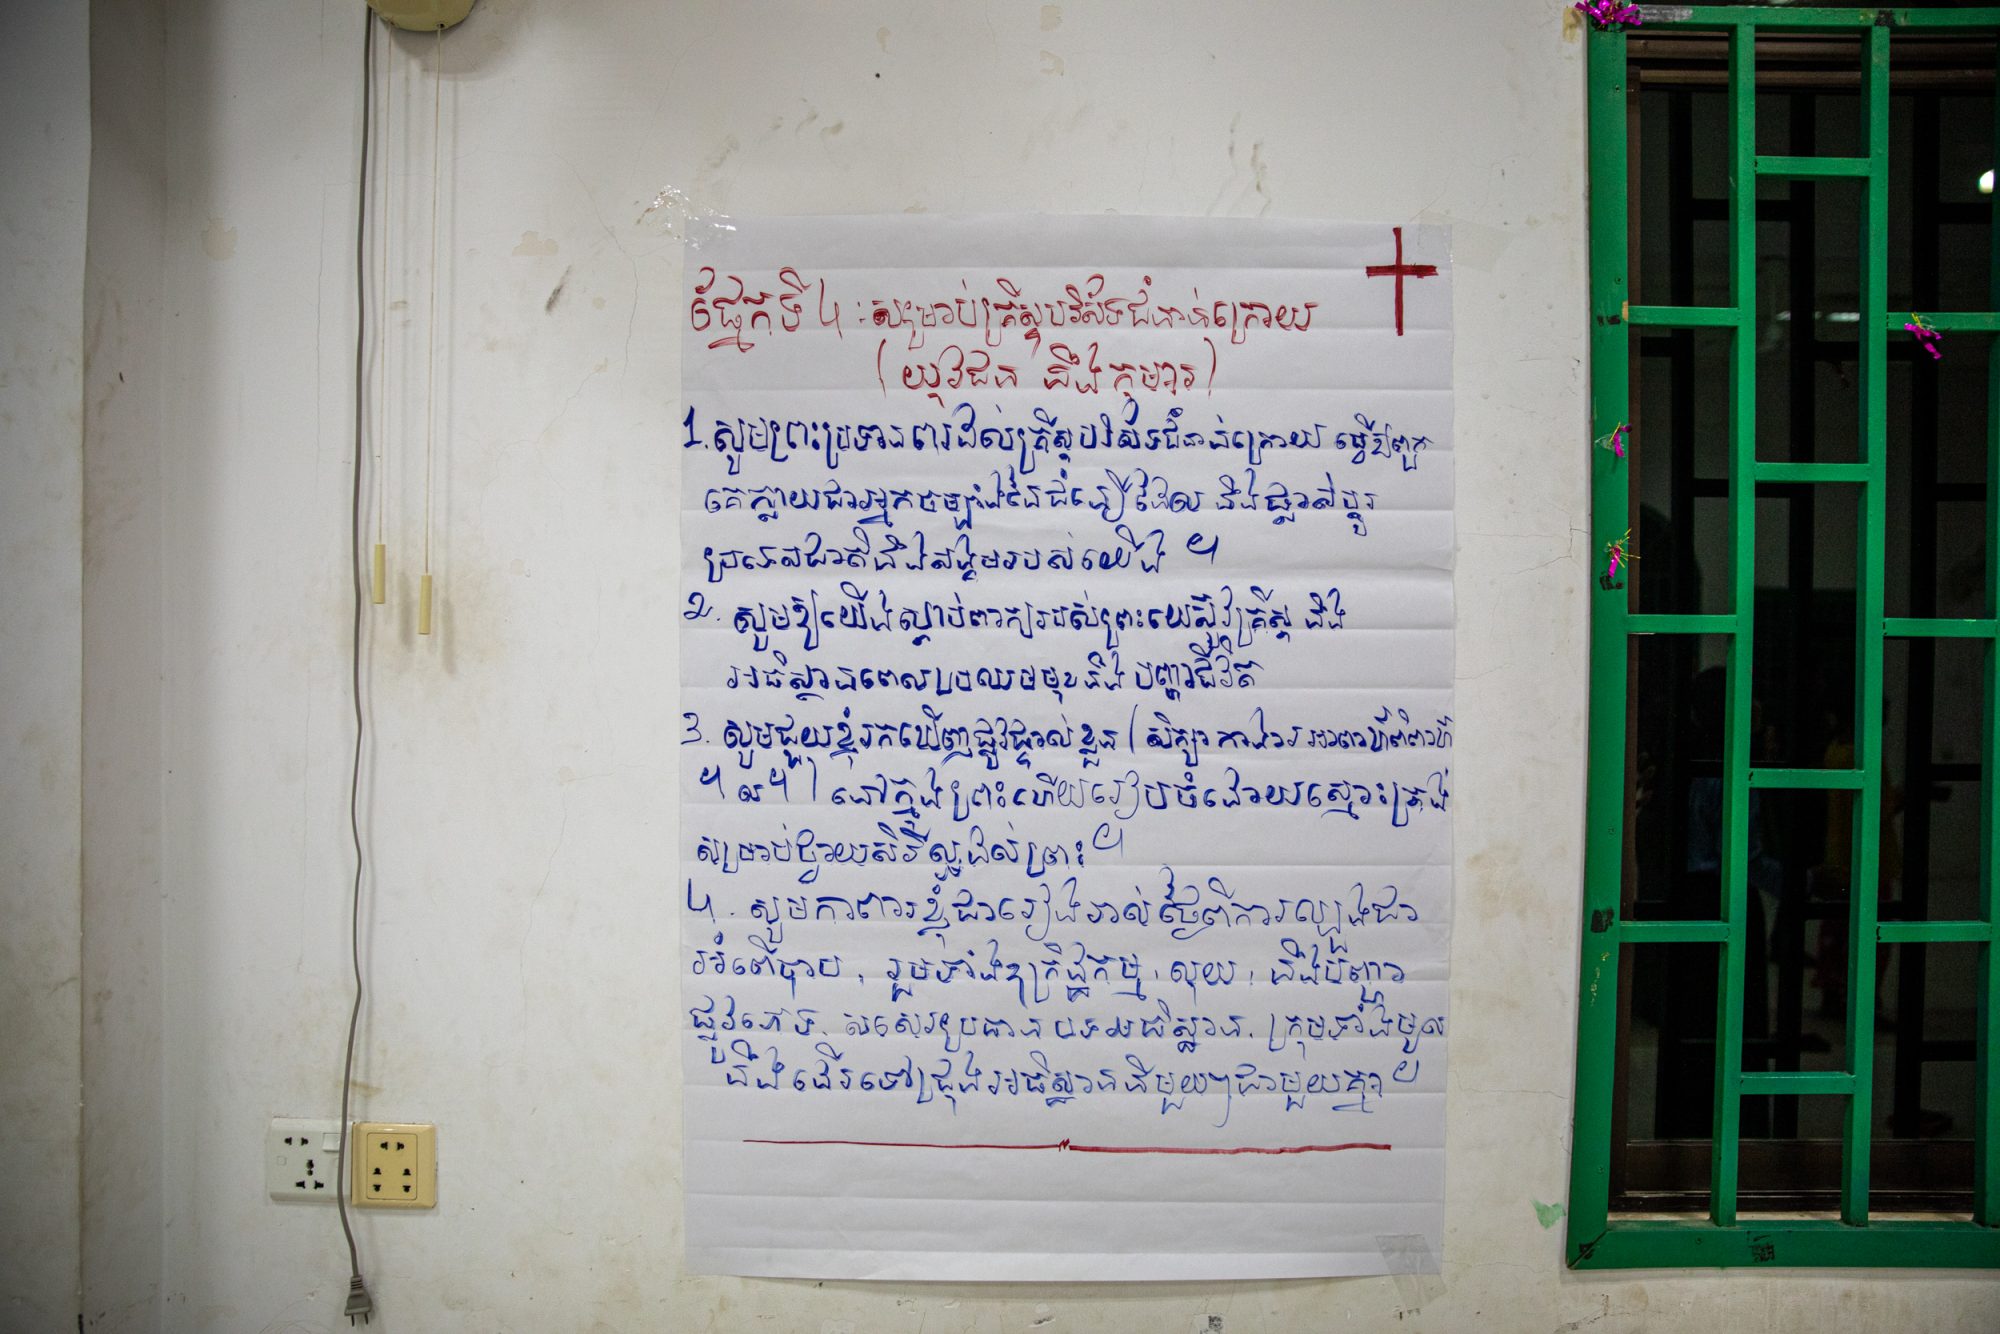 ផ្នែកទី 4 : សម្រាប់គ្រីស្ទបរិស័ទជំនាន់ក្រោយ
( យុវជន និងកុមារ )
1. សូមព្រះប្រទានពរដល់គ្រីស្ទបរិស័ទជំនាន់ក្រោយ ធ្វើឱ្យពួក
គេក្លាយជាអ្នកចម្បាំងនៃជំនឿដែល នឹងផ្លាស់ប្តូរ
ប្រទេសជាតិនិងសង្គមរបស់យើង ។
2. សូមឱ្យយើងស្តាប់ពាក្យរបស់ព្រះយេស៊ូវគ្រីស្ទ និង
អធិស្ឋានពេលប្រឈមមុខនឹង បញ្ហាជីវិត
3. សូមជួយខ្ញុំរកឃើញផ្លូវផ្ទាល់ខ្លួន ( សិក្សា ការងារ អាពាហ៍ពិពាហ៍
។ល។ ) នៅក្នុងព្រះហើយរៀបចំដោយស្មោះត្រង់
សម្រាប់ថ្វាយសិរីល្អដល់ព្រះ ។
4. សូមការពារខ្ញុំជារៀងរាល់ថ្ងៃពីការល្បួងជា
អំពើបាប , រួមទាំងឧក្រិដ្ឋកម្ម , លុយ , និងបញ្ហា
ផ្លូវភេទ. សសេរប្រធានបទអធិស្ឋាន. ក្រុមទាំងមូល
នឹងដើរទៅជ្រុងអធិស្ឋាននីមួយៗជាមួយគ្នា ។